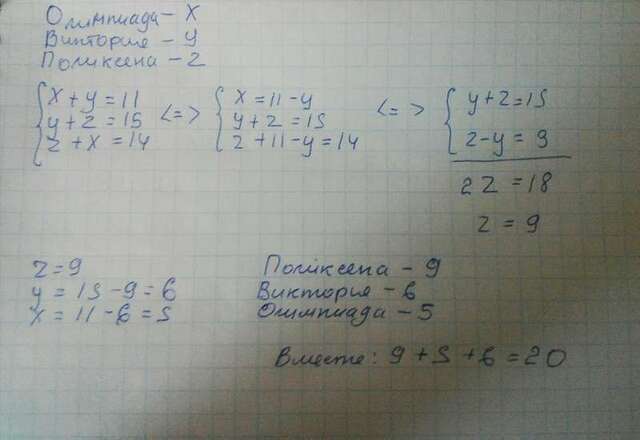 Олимпиада - X
Виктория - y
Поликсена - z
{ x + y = 11
y + z = 15
z + x = 14 <=> { x = 11 - y
y + z = 15
z + 11 - y = 14 <=> { y + z = 15
z - y = 9
2z = 18
z = 9
z = 9
y = 15 - 9 = 6
x = 11 - 6 = 5
Поликсена - 9
Виктория - 6
Олимпиада - 5
Вместе: 9 + 5 + 6 = 20